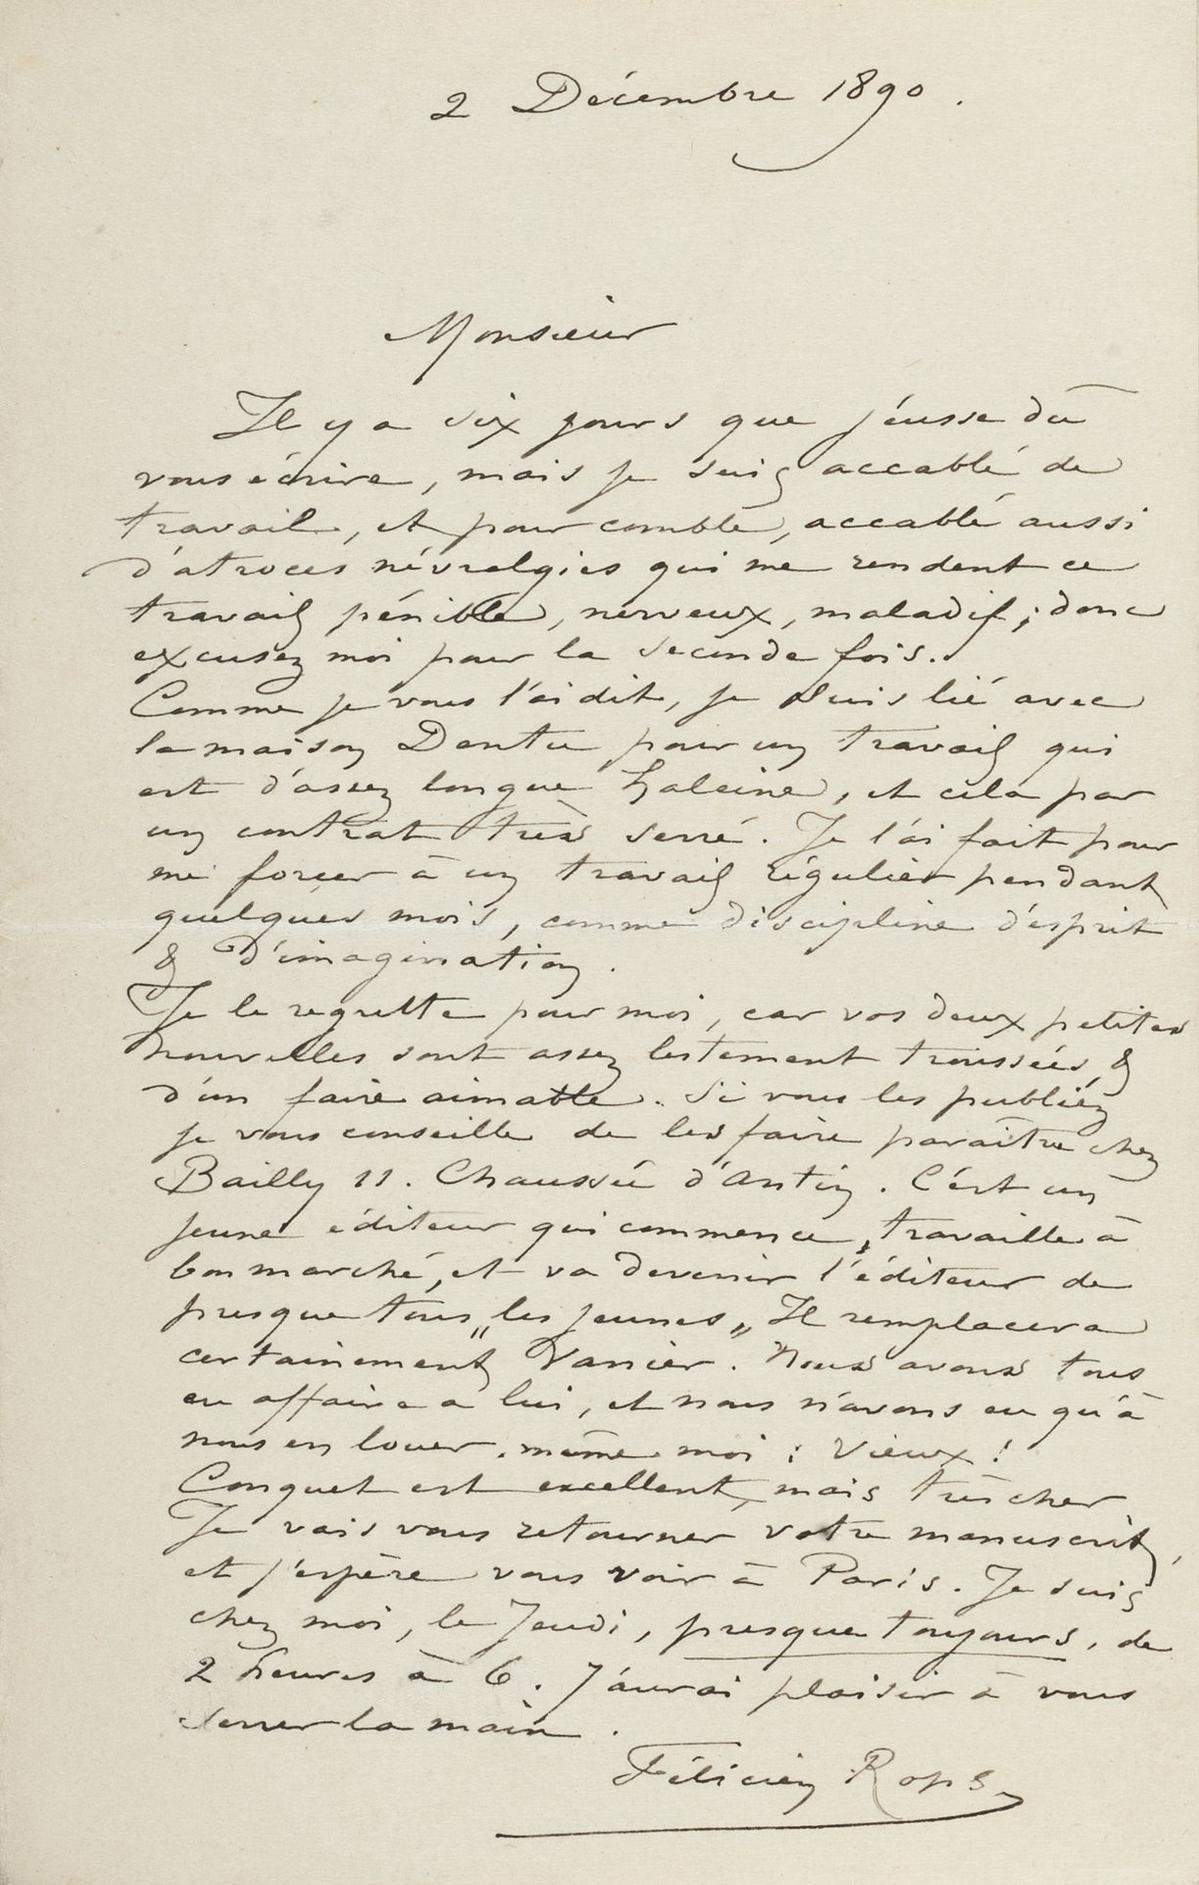 2 Décembre 1890.
Monsieur
Il y a six jours que j'eusse dû
vous écrire, mais je suis accablé de
travail, et pour comble, accablé aussi
d'atroces névralgies qui me rendent ce
travail pénible, nerveux, maladif; donc
excusez moi pour la seconde fois.
Comme je vous l'ai dit, je suis lié avec
la maison Dentu pour un travail qui
est d'assez longue haleine, et cela par
un contrat très serré. Je l'ai fait pour
me forcer à un travail régulier pendant
quelques mois, comme discipline d'esprit
& d'imagination.
Je le regrette pour moi, car vos deux petites
nouvelles sont assez lestement troussées, &
d'un faire aimable. Si vous les publiez
je vous conseille de les faire paraître chez
Bailly 11. Chaussée d'Antin. C'est un
jeune éditeur qui commence, travaille à
bon marché, et va devenir l'éditeur de
presque tous „les jeunes„ Il remplacera
certainement Vanier. Nous avons tous
eu affaire a lui, et nous n'avons eu qu'à
nous en louer. même moi : Vieux !
Conquet est excellent, mais très cher
Je vais vous retourner votre manuscrit,
et j'espère vous voir à Paris. Je suis
chez moi, le Jeudi, presque toujours, de
2 heures à 6. J'aurai plaisir à vous
serrer la main.
Félicien Rops